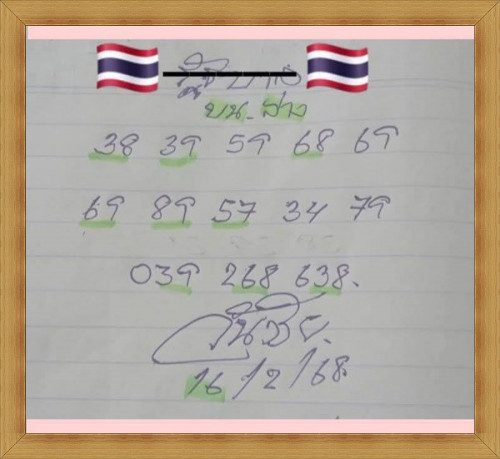 บน-ล่าง
38 39 59 68 69
69 89 57 34 79
039 268 638.
16/2/68